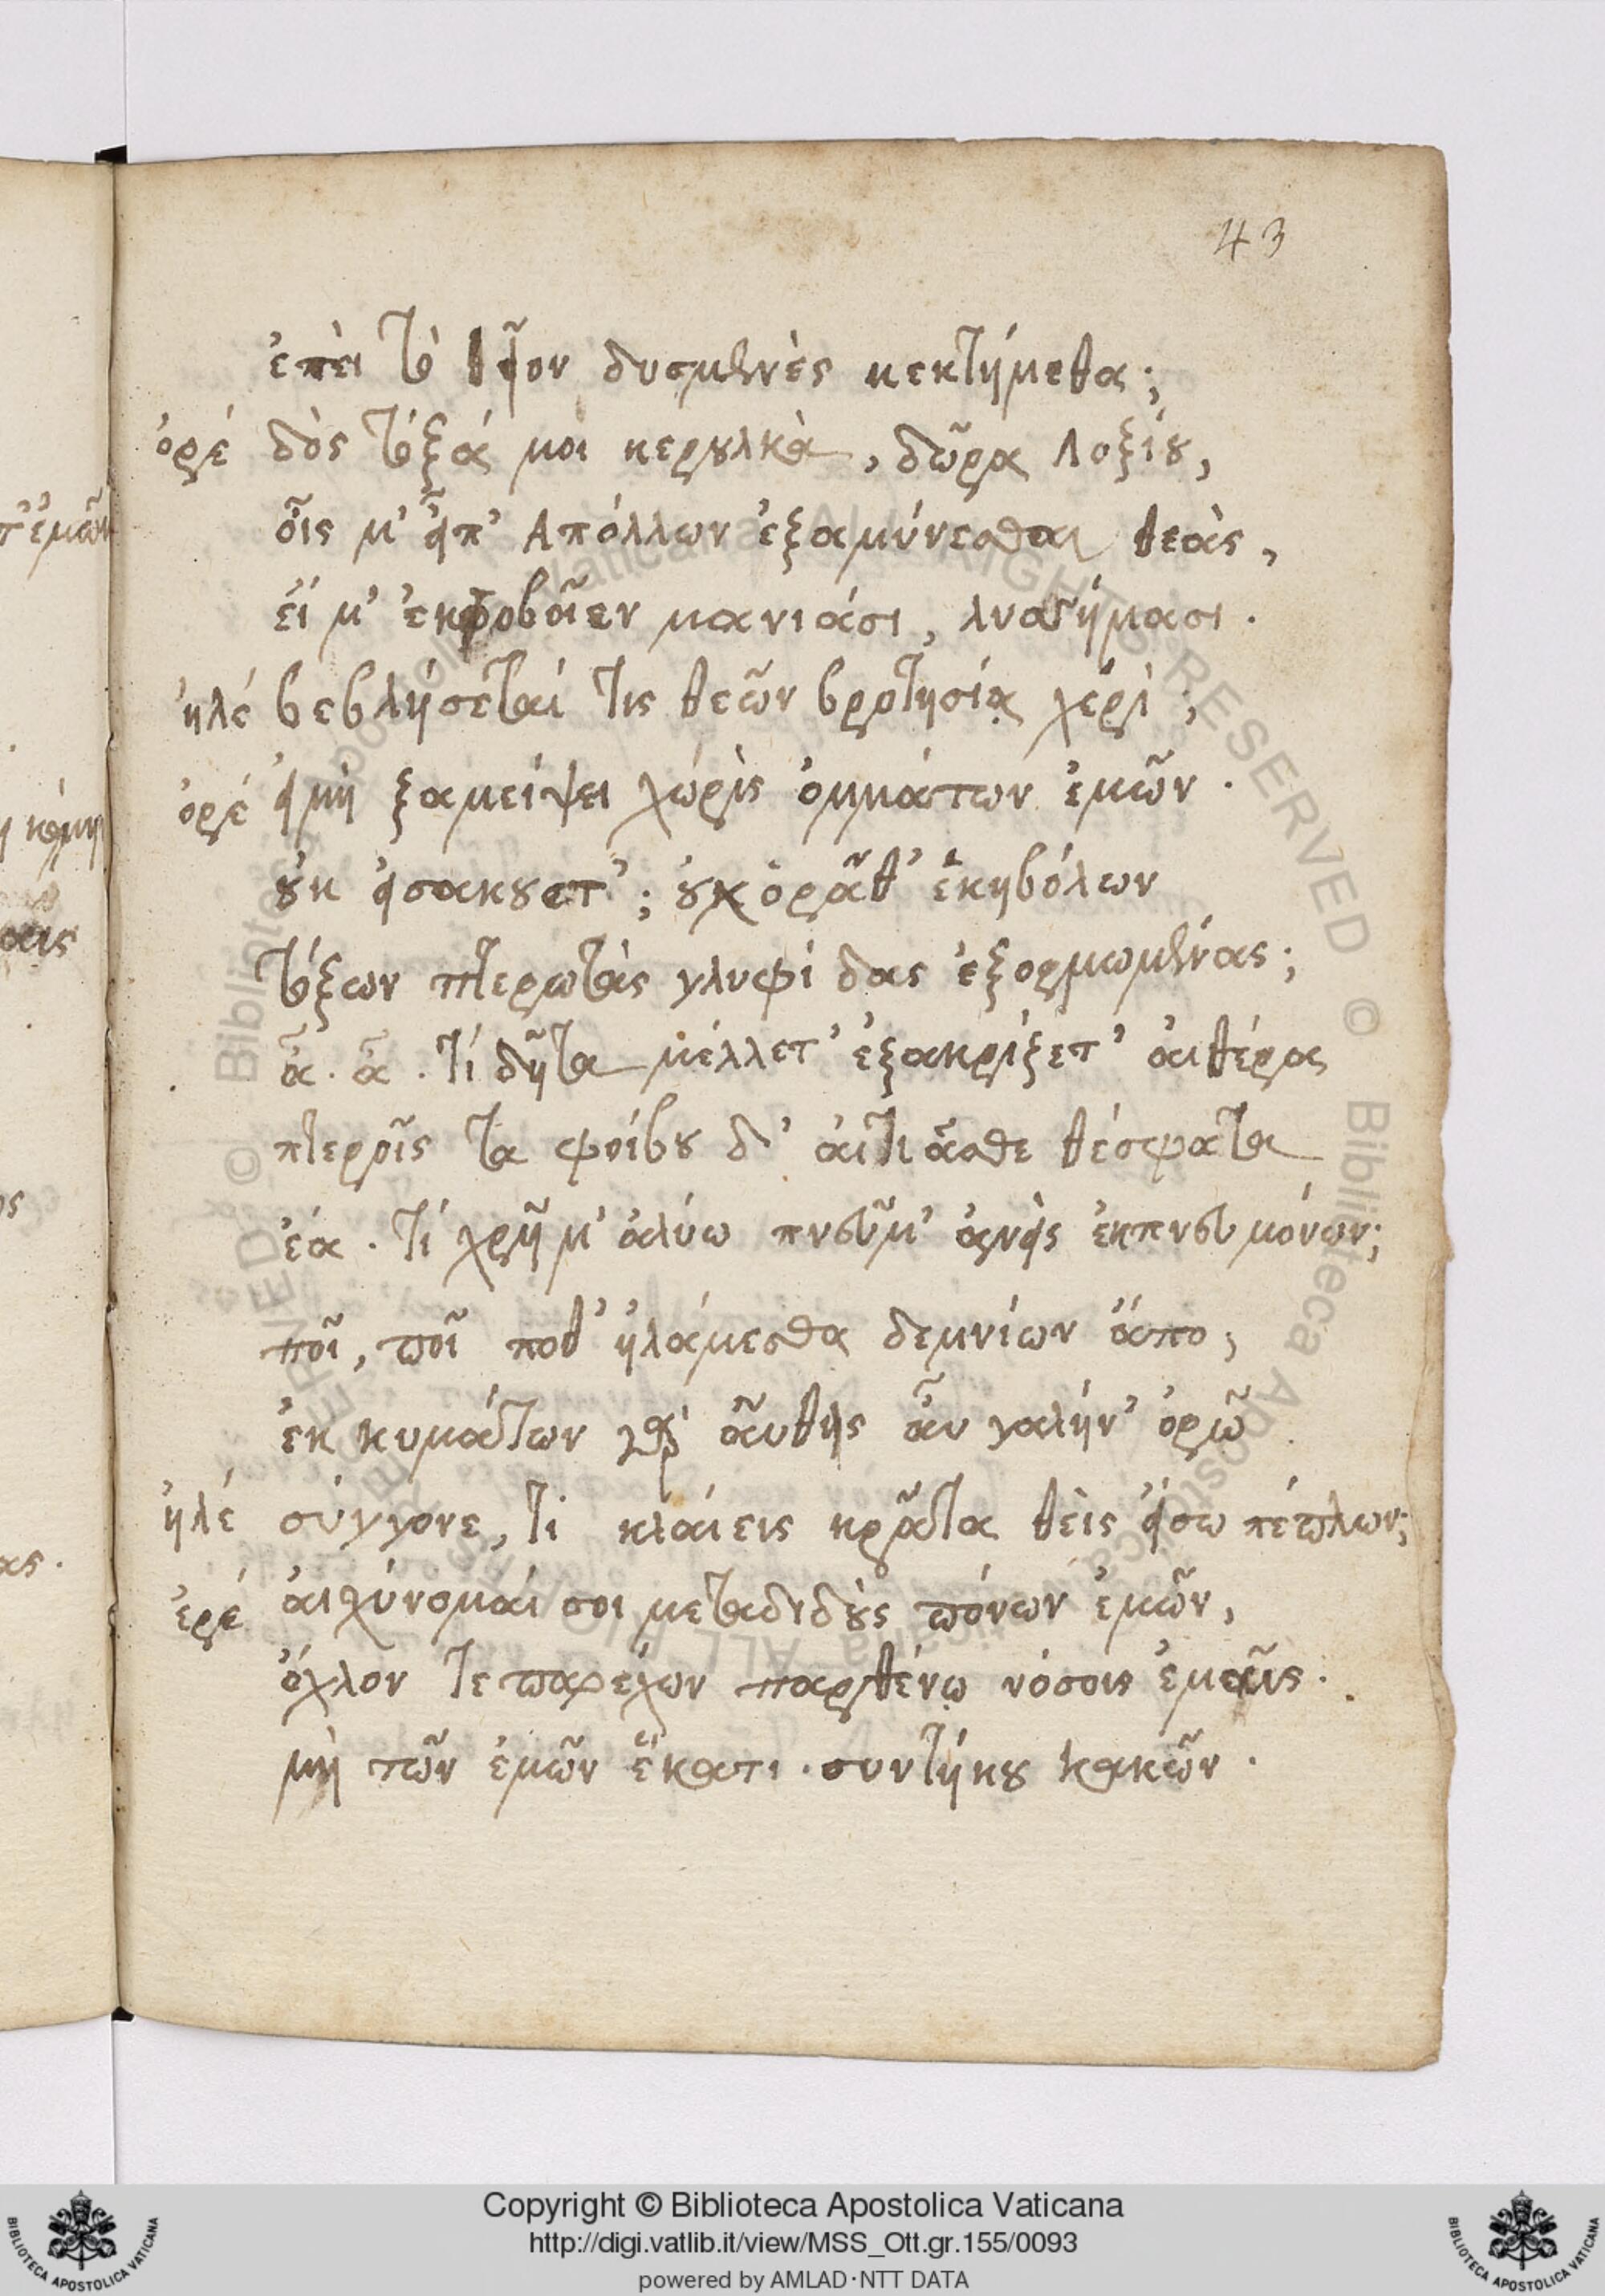 43
ἐπεὶ τὸ θεῖον δυσμενὲς κεκτήμεθα;
ὀρέ δὸς τόξά μοι κερουλκὰ, δῶρα Λοξίου,
οἷς μ' εἶπ' Απόλλων ἐξαμύνεσθαι θεὰς,
εἴ μ' ἐκφοβοῖεν μανιάσι, λυσσήμασι.
ἠλέ βεβλήσεταί τις θεῶν βροτησίᾳ χερί;
ὀρέ εἰ μὴ ξαμείψει χώρὶς ὀμμάτων ἐμῶν.
οὐκ εἰσακούετ'; οὐχ ὁρᾶθ' ἑκηβόλων
τόξων πτερωτὰς γλυφίδας ἐξορμωμένας;
ἆ. ἆ. τί δῆτα μέλλετ' ἐξακρίζετ' αἰθέρα
πτεροῖς τὰ φοίβου δ' αἰτιᾶσθε θέσφατα
ἔα. τί χρῆμ' ἀλύω πνεῦμ' ἀνεὶς ἐκ πνευμόνων;
ποῖ, ποῖ ποθ' ἡλάμεσθα δεμνίων ἄπο;
ἐκ κυμάτων γὰρ αὖθις αὖ γαλήν' ὁρῶ
ἠλέ σύγγονε, τί κλαίεις κρᾶτα θεὶς εἴσω πέπλων;
ὀρέ αἰσχύνομαί σοι μεταδιδοὺς πόνων ἐμῶν,
ὄχλον τε παρέχων παρθένῳ νόσοις ἐμαῖς.
μὴ τῶν ἐμῶν ἕκατι. συντήκου κακῶν.
Copyright © Biblioteca Apostolica Vaticana
http://digi.vatlib.it/view/MSS_Ott.gr.155/0093
powered by AMLAD·NTT DATA